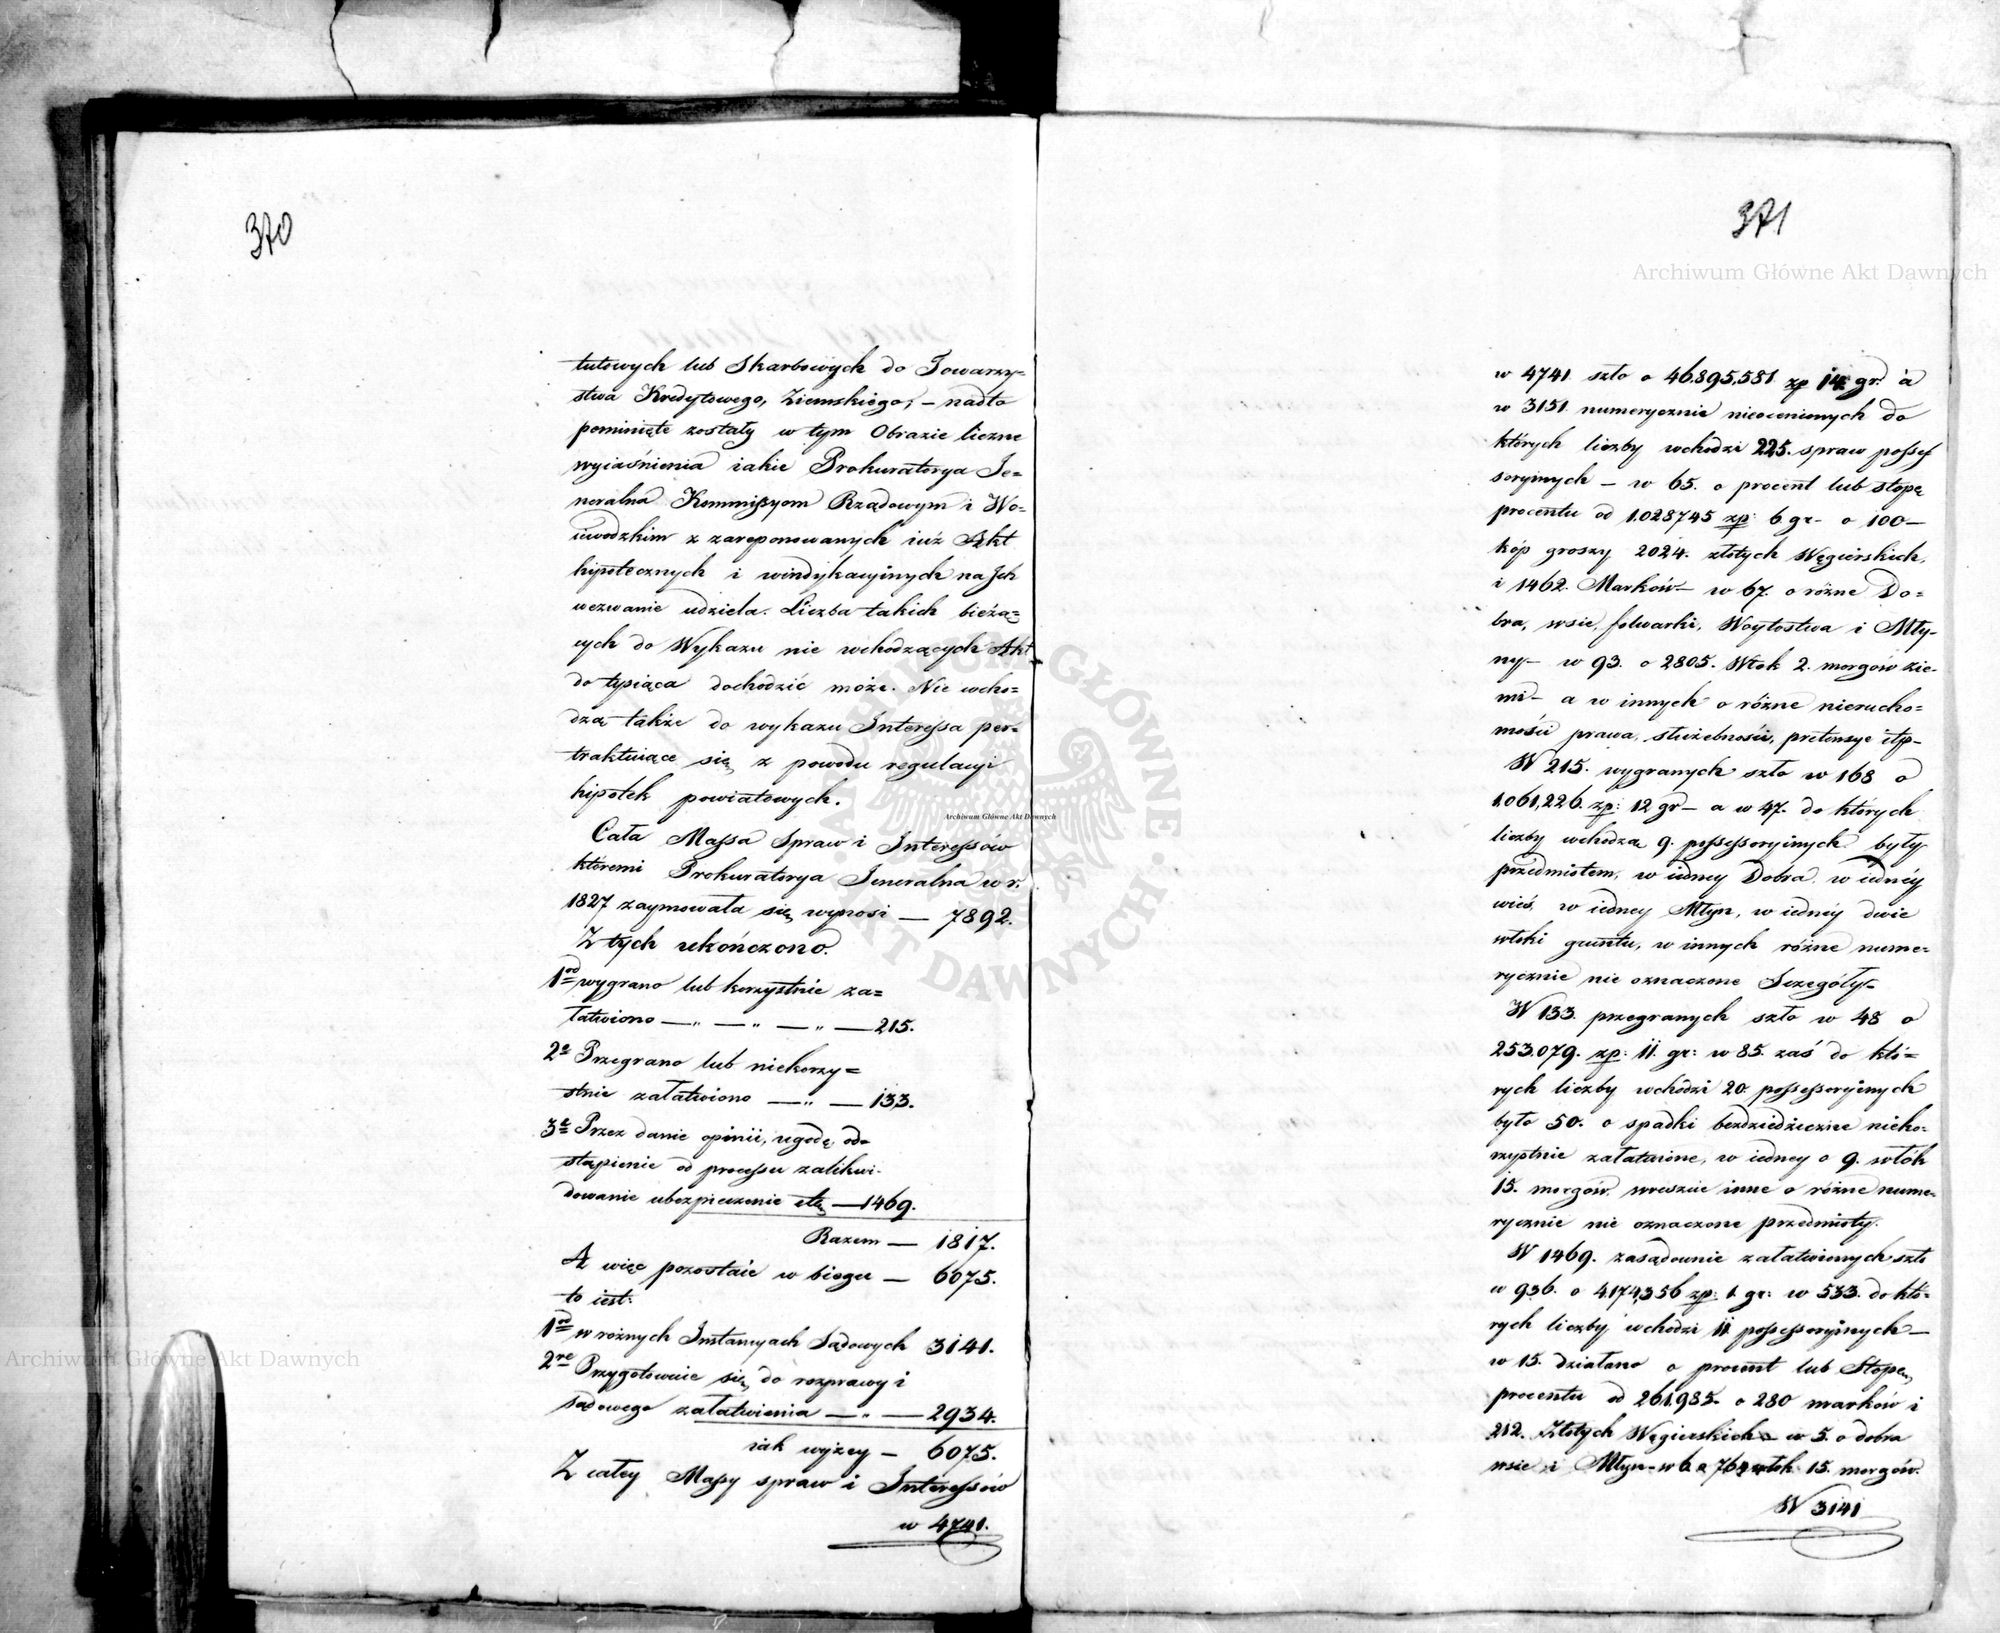 370
tutowych lub Skarbowych do Towarzy=
stwa Kredytowego, Ziemskiego; – nadto
pominięte zostały w tym Obrazie liczne
wyiaśnienia iakie Prokuratorya Je=
neralna Kommissyom Rządowym i Wo=
iewodzkim z zareponowanych iuż Akt
hipotecznych i windykacyinych na Jch
wezwanie udziela. Liczba takich bieżą=
cych do Wykazu nie wchodzących Akt
do tysiąca dochodzić może. Nie wcho=
dzą także do wykazu Interessa per=
traktuiące się z powodu regulacyi
hipotek powiatowych.
Cała Massa Spraw i Interessów
któremi Prokuratorya Jeneralna w r.
1827 zaymowała się wynosi — 7892.
Z tych ukończono.
1od wygrano lub korzystnie za=
łatwiono — „ — „ — „ — 215.
2e Przegrano lub niekorzy=
stnie załatwiono — „ — 133.
3e Przez danie opinii, ugodę, od=
stąpienie od processu zalikwi-
dowanie ubezpieczenie etc — 1469.
Razem — 1817.
A więc pozostaie w biegu — 6075.
to iest:
1od w rożnych Instancyach Sądowych 3141.
2re Przygotowuie się do rozprawy i
sądowego załatwienia — „ — 2934.
iak wyżey — 6075.
Z całey Massy spraw i Interessów
w 4741.
371
w 4741 szło o 46.895,581 zp 14 gr. a
w 3151 numerycznie nieocenionych do
których liczby wchodzi 225. spraw posses
soryinych – w 65. o procent lub stopę
procentu od 1.028745 zp: 6 gr – o 100 –
kóp groszy 2024. złotych Węgierskich,
i 1462. Marków – w 67. o różne Do=
bra, wsie, folwarki, Woytostwa i Mły-
ny – w 93. o 2805. Włok 2. morgów zie-
mi – a w innych o różne nierucho=
mości prawa, służebności, pretensye itp –
W 215. wygranych szło w 168 o
1.061,226. zp: 12 gr – a w 47. do których
liczby wchodzą 9. possessoryinych były
przedmiotem, w iedney Dobra, w iednéy
wieś, w iedney Młyn, w iednéy dwie
włoki gruntu, w innych różne nume=
rycznie nie oznaczone Szczegóły –
W 133. przegranych szło w 48 o
253.079. zp: 11. gr: w 85. zaś do któ=
rych liczby wchodzi 20. possessoryinych
było 50. o spadki bezdziedziczne nieko=
rzystnie załatwione, w iedney o 9. włók
15. morgów, wreszcie inne o różne nume=
rycznie nie oznaczone przedmioty.
W 1469. zasądownie załatwionych szło
w 936. o 4.174,356 zp: 1. gr: w 533. do któ=
rych liczby wchodzi 11 possessoryinych –
w 15. działano o procent lub Stopę,
procentu od 261.985. o 280 marków i
212. Złotych Węgierskich – w 5. o dobra
wsie i Młyn – w 6. o 764 włok 15. morgów.
W 3141
Archiwum Główne Akt Dawnych
Archiwum Główne Akt Dawnych
Archiwum Główne Akt Dawnych
ARCHIWUM GŁÓWNE · AKT DAWNYCH ·